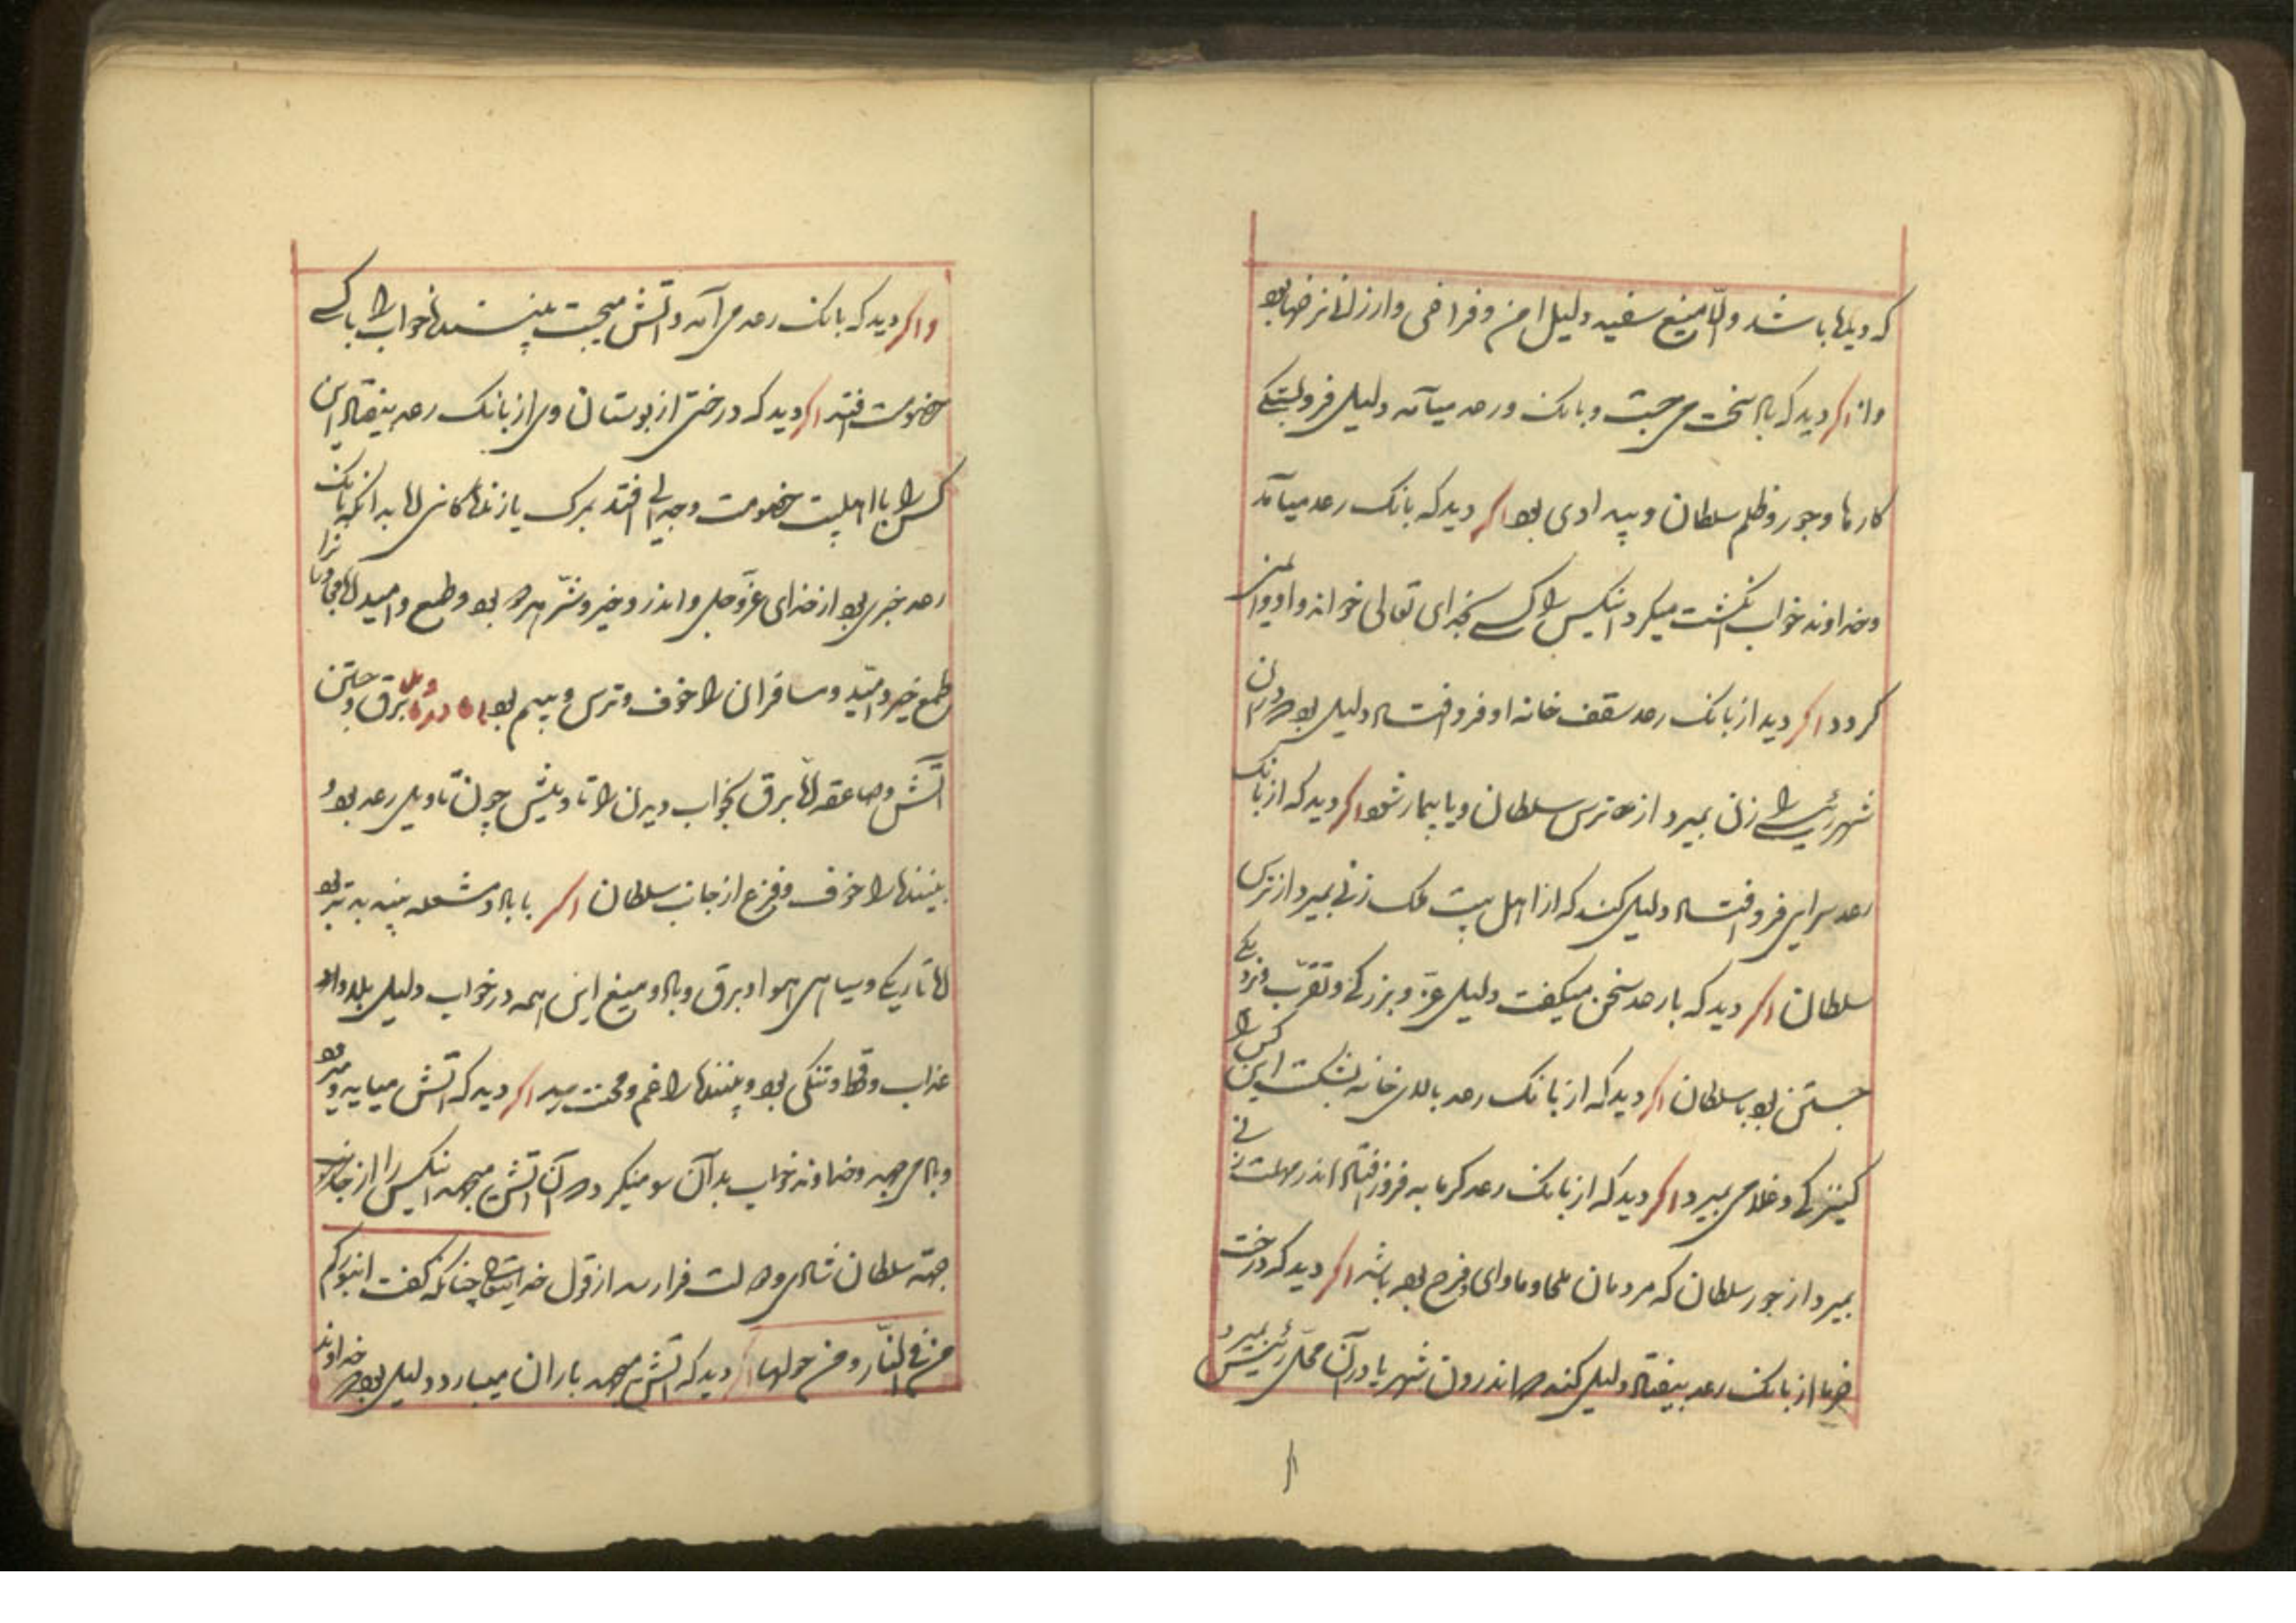 که دیگها باشد و اما میغ سفید دلیل امن و فراخی و ارزانی نرخها بود
و از اکر دید که باد سخت می جست و بانک و رعد میآمد دلیل فروبستکی
کارها و جور و ظلم سلطان و بیدادی بود اکر دید که بانک رعد میآمد
و خداوند خواب انکشت میکرد آنکس را کسی بخدای تعالی خواند و او
کردد اکر دید از بانک رعد سقف خانه او فرو افتاد دلیل بود در آن
شهر رئیسی را زن بمیرد از ترس سلطان و یا بیمار شود اکر دید که از بانک
رعد سرایی فرو افتاد دلیل کند که از اهل بیت ملک زنی بمیرد از ترس
سلطان اکر دید که با رعد سخن میکفت دلیل عز و بزرکی و تقرب و نزدیکی
جستن بود با سلطان اکر دید که از بانک رعد بالای خانه بشکست این کس را
کنیزکی و غلامی بمیرد اکر دید که از بانک رعد کرمابه فرو افتاد اندر زنی
بمیرد از جور سلطان که مردمان ملجا و ماوای فرح بود باشد اکر دید که درخت
خرما از بانک رعد بیفتاد دلیل کند که اندرون شهر یا در آن محل رئیس بمیرد
و اکر دید که بانک رعد می آمد و آتش میجست بیننده خواب را با کسی
خصومت افتد اکر دید که درختی از بوستان وی از بانک رعد بیفتاد این
کس را با اهلبیت خصومت و جدایی افتد بمرک یا زندکانی اما بدانکه بانک
رعد خبری بود از خدای عز و جل و اندر و خیر و شر هر دو بود و طمع و امید
طمع خیر و امید و مسافران را خوف و ترس و بیم بود باب در تاویل برق و جستن
آتش و صاعقه اما برق بخواب دیدن را تاویلش چون تاویل رعد بود
بیننده را خوف و فزع از جانب سلطان اکر با باد و مشعله بیند بدتر بود
اما تاریکی و سیاهی هوا و برق و باد و میغ این همه در خواب دلیل بلا و
عذاب و قحط و تنکی بود و بیننده را غم و محنت رسد اکر دید که آتش میآید و
و باد می جهد و خداوند خواب بدآن سو مینکرد و از آن آتش میجهد آنکس را از جانب
جهته سلطان شادی و فرا رسد از قول خدایتعالی چنانکه کفت ان بورک
من فی النار و من حولها اکر دید که آتش میجهد باران میبارد دلیل بود خداوند